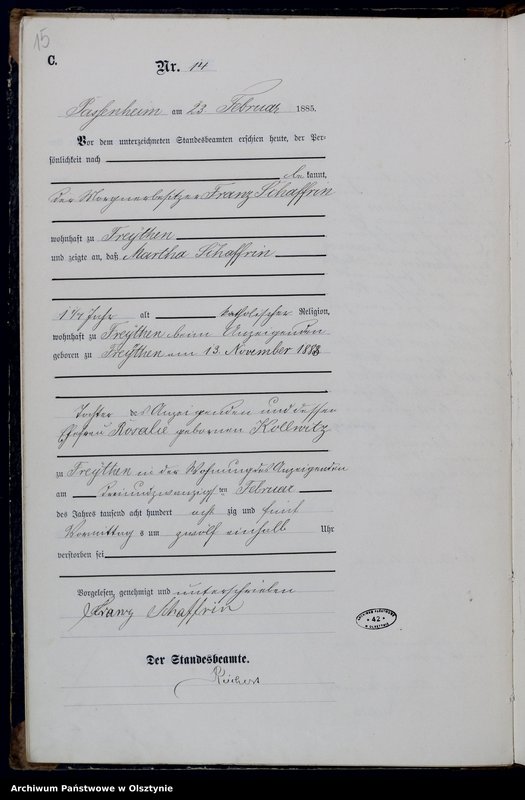 15
C.
Nr. 14
Passenheim am 23 Februar 1885.
Vor dem unterzeichneten Standesbeamten erschien heute, der Per-
sönlichkeit nach
be kannt,
der Morgnerbesitzer Franz Schaffrin
wohnhaft zu Freythen
und zeigte an, daß Martha Schaffrin
1 1/4 Jahr alt katholischer Religion,
wohnhaft zu Freythen beim Anzeigenden
geboren zu Freythen am 13. November 1883
Tochter des Anzeigenden und dessen
Ehefrau Rosalie gebornen Kollwitz
zu Freythen in der Wohnung des Anzeigenden
am dreiundzwanzigsten Februar
des Jahres tausend acht hundert acht zig und fünf
Vormittags um zwölf einhalb Uhr
verstorben sei
Vorgelesen, genehmigt und unterschrieben
Franz Schaffrin
Der Standesbeamte.
ARCHIWUM PAŃSTWOWE
* 42 *
W OLSZTYNIE
Archiwum Państwowe w Olsztynie